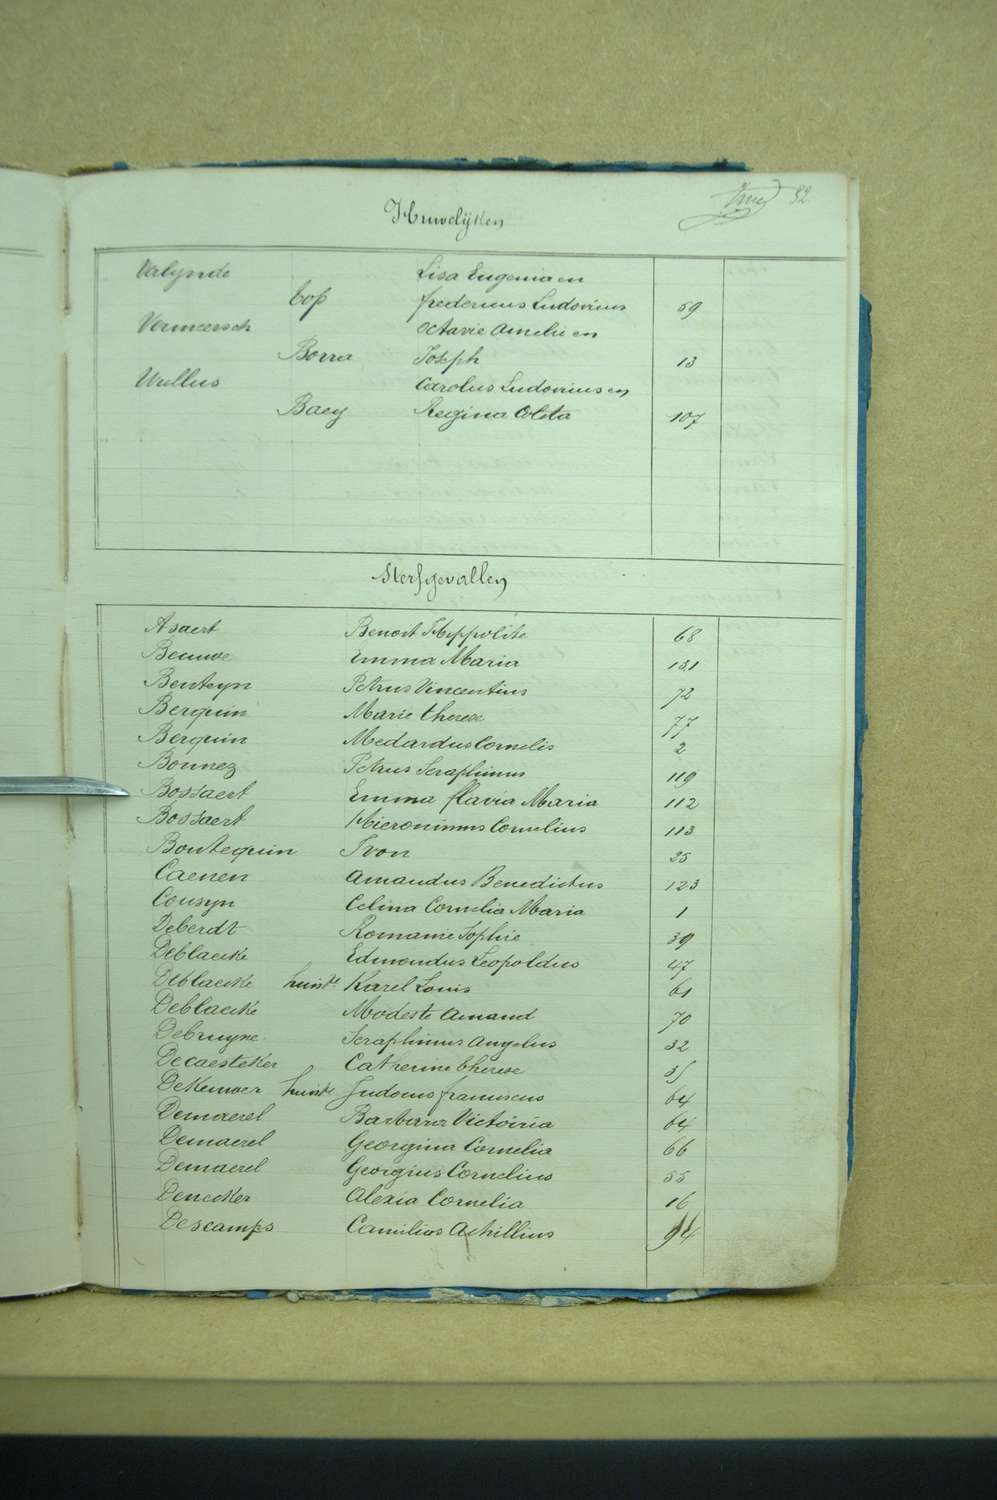 Huwelijken 32
Valynde Lisa Eugenia en
Top fredericus Ludovicus 59
Vermeersch Octavie Amelie en
Borra Joseph 13
Wullus Carolus Ludovicus en
Baey Regina Coleta 107
Sterfgevallen
Asaert Benoit Hippolite 68
Beauwe Emma Maria 131
Benteyn Petrus Vincentius 72
Berquin Marie therese 77
Berquin Medardus Cornelis 2
Bonnez Petrus Seraphinus 119
Bossaert Emma flavia Maria 112
Bossaert Hieronimus Cornelius 113
Boutequin Ivon 25
Caenen Amandus Benedictus 123
Cousyn Celina Cornelia Maria 1
Deberdt Romanie Sophie 39
Deblaecke Edmondus Leopoldus 47
Deblaecke Karel Louis 61
Deblaecke Modeste Amand 70
Debruyne Seraphinus Angelus 32
Decaesteker Catherine therese 35
Dekeuwer Judocus franciscus 64
Demaerel Barbara Victoiria 64
Demaerel Georgina Cornelia 66
Demaerel Georgius Cornelius 55
Deneker Alexia Cornelia 16
Descamps Camilius Achillius 94